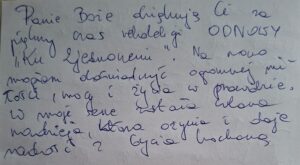 Panie Boże dziękuję Ci za
piękny czas rekolekcji ODNOWY
"Ku Zjednoczeniu". Na nowo
mogłam doświadczyć ogromnej mi-
łości, mocy i życia w prawdzie.
W moje serce została wlana
nadzieja, która ożywia i daje
radość z życia